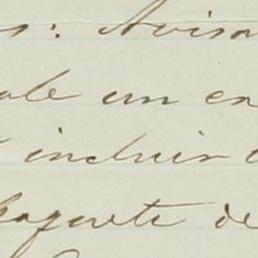 s: Avisa
ale un en
incluir
paquete de